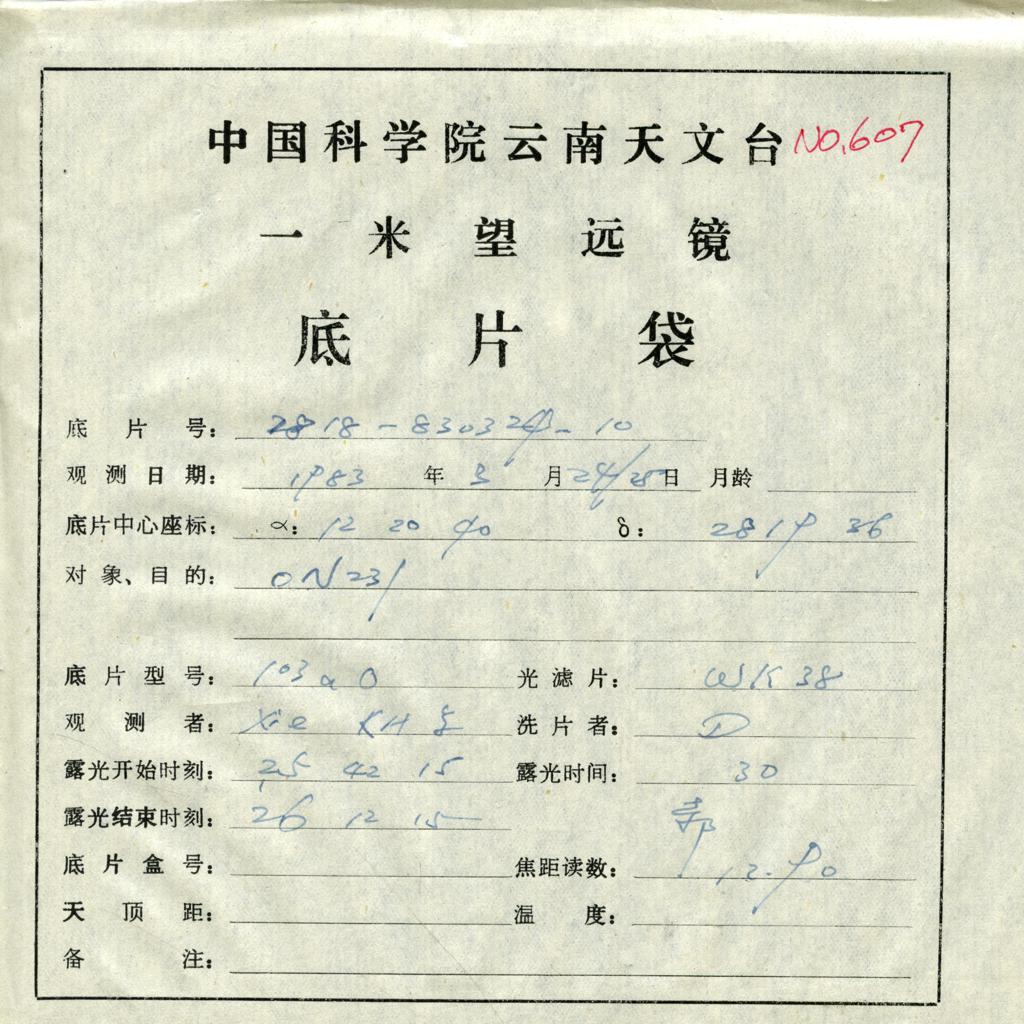 中国科学院云南天文台 NO.607
一米望远镜
底片袋
底片号: 2818-830324-10
观测日期: 1983 年 3 月 24/25 日 月龄
底片中心座标: α: 12 20 40 δ: 28 19 36
对象、目的: ON231
底片型号: 103aO 光滤片: WK38
观测者: Xie KH 洗片者: D
露光开始时刻: 25 42 15 露光时间: 30
露光结束时刻: 26 12 15
底片盒号: 焦距读数: 12.90
天顶距: 温度:
备注: